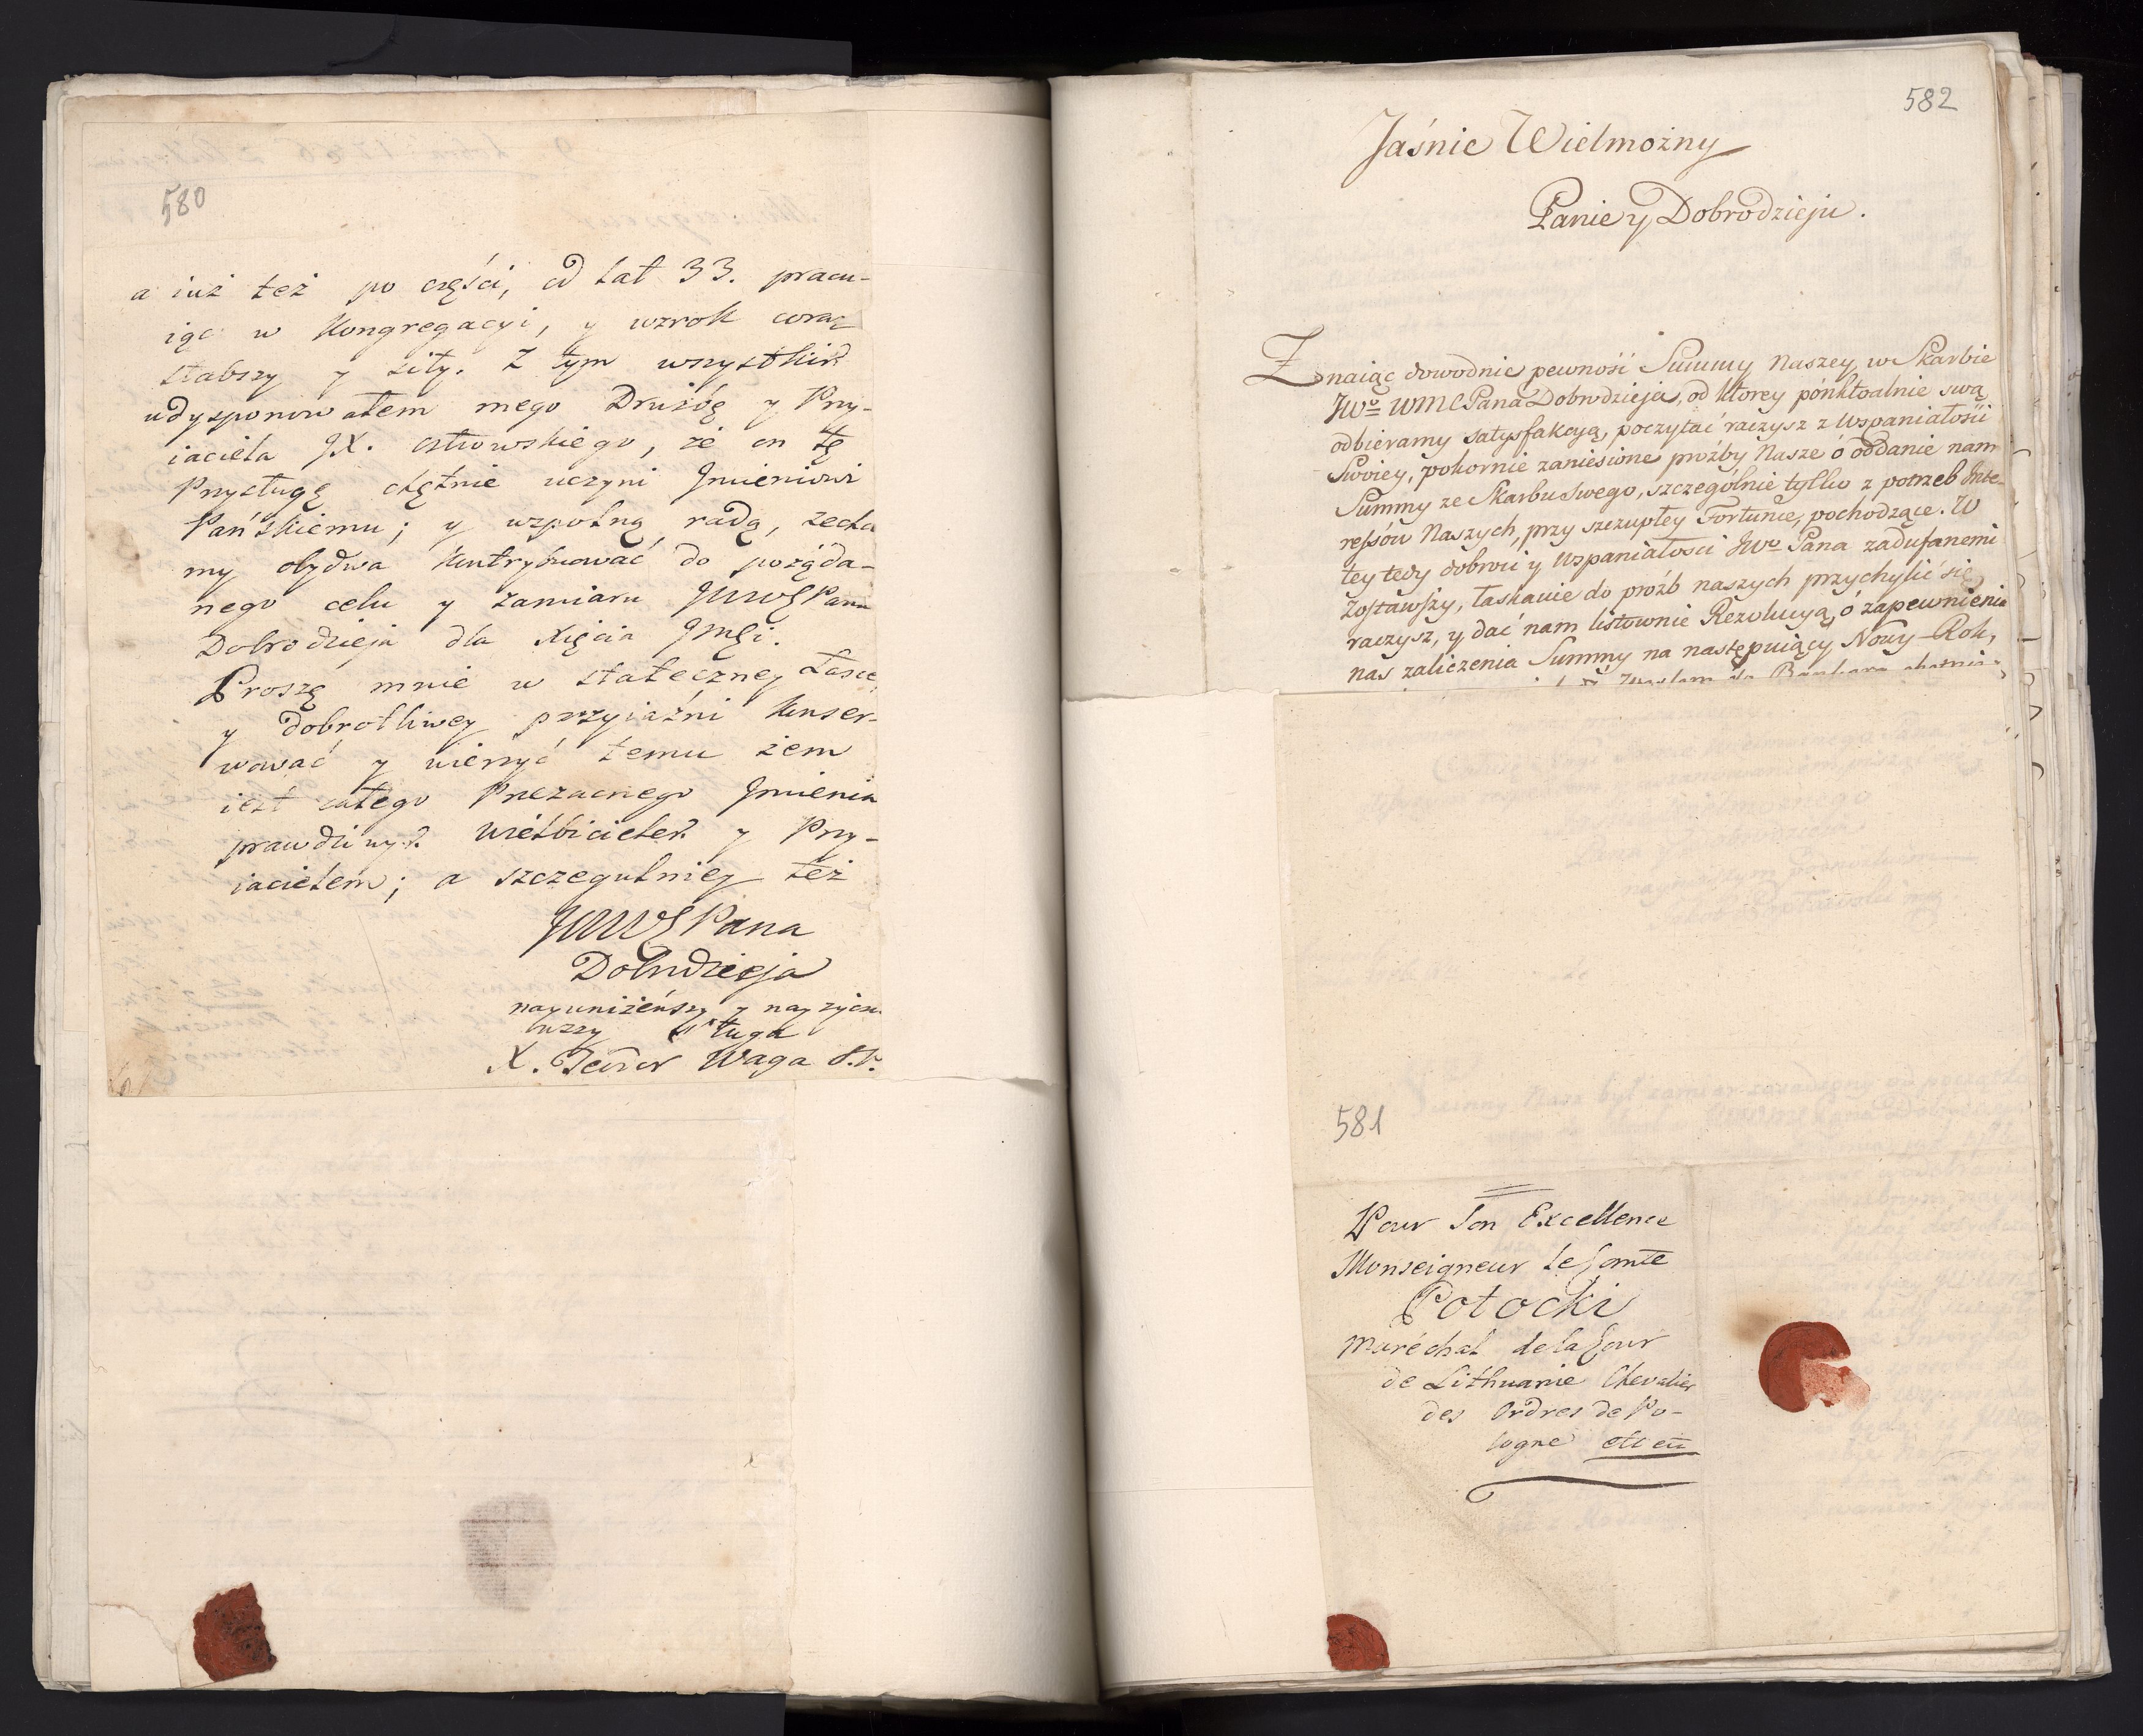 580
a iuż też po części, od lat 33. pracu-
iąc w Kongregacyi, y wzrok coraz
słabszy y siły. Z tym wszystkim
udysponowałem mego Drużbę y Przy-
iaciela JX. Ostrowskiego, że on tę
Przysługę chętnie uczyni Jmieniowi
Pańskiemu; y wspolną radą, zechce
my obydwa kontrybuować do pożąda-
nego celu y zamiaru JWWPana
Dobrodzieja dla Xięcia Jmści.
Proszę mnie w stateczney Łasce,
y dobrotliwey przyiaźni konser-
wować y wierzyć temu żem
iest całego Przezacnego Jmienia
prawdziwym wielbicielem y Przy-
iacielem; a szczegulniey też
Pana
Dobrodzieja
nayuniżeńszy y nayżycz-
liwszy sługa
X. Teodor Waga S.P.
582
Jaśnie Wielmożny
Panie y Dobrodzieju.
Znaiąc dowodnie pewność Summy Naszey w Skarbie
JWo WMC Pana Dobrodzieja, od ktorey pónktoalnie swą
odbieramy satysfakcyą, poczytać raczysz z Wspaniałości
Swoiey, pokornie zaniesione proźby Nasze ó oddanie nam
Summy ze Skarbu swego, szczególnie tylko z potrzeb Inte-
ressów Naszych, przy szczupłey Fortunie, pochodzące. W
tey tedy dobroci y Wspaniałości JWo Pana zadufanemi
zostawszy, łaskawie do proźb naszych przychylić się
raczysz, y dać nam listownie Rezolucyą, ó zapewnienie
nas zaliczenia Summy na następuiący Nowy-Rok,
581
Pour Son Excellence
Monseigneur le Comte
Potocki
Maréchal de la Cour
de Lithuanie Chevalier
des Ordres de Po-
logne etc etc